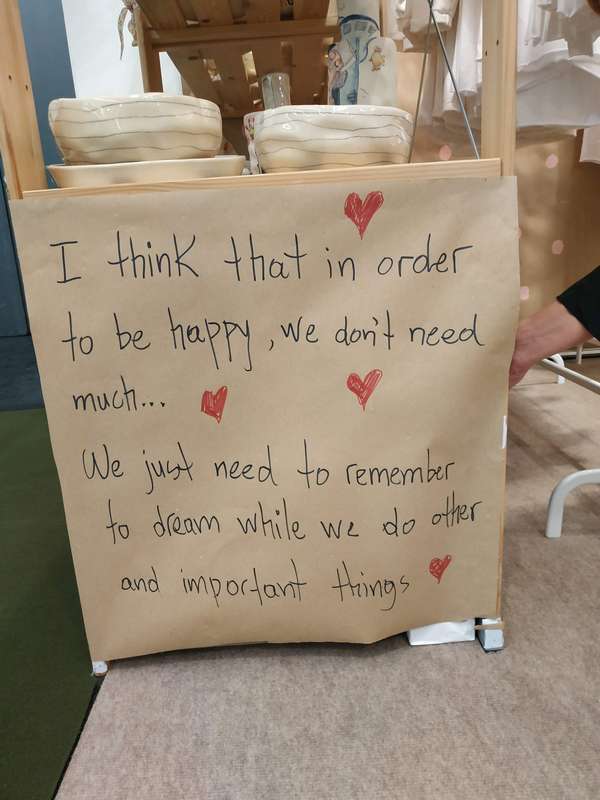 I think that in order
to be happy, we don't need
much...
We just need to remember
to dream while we do other
and important things